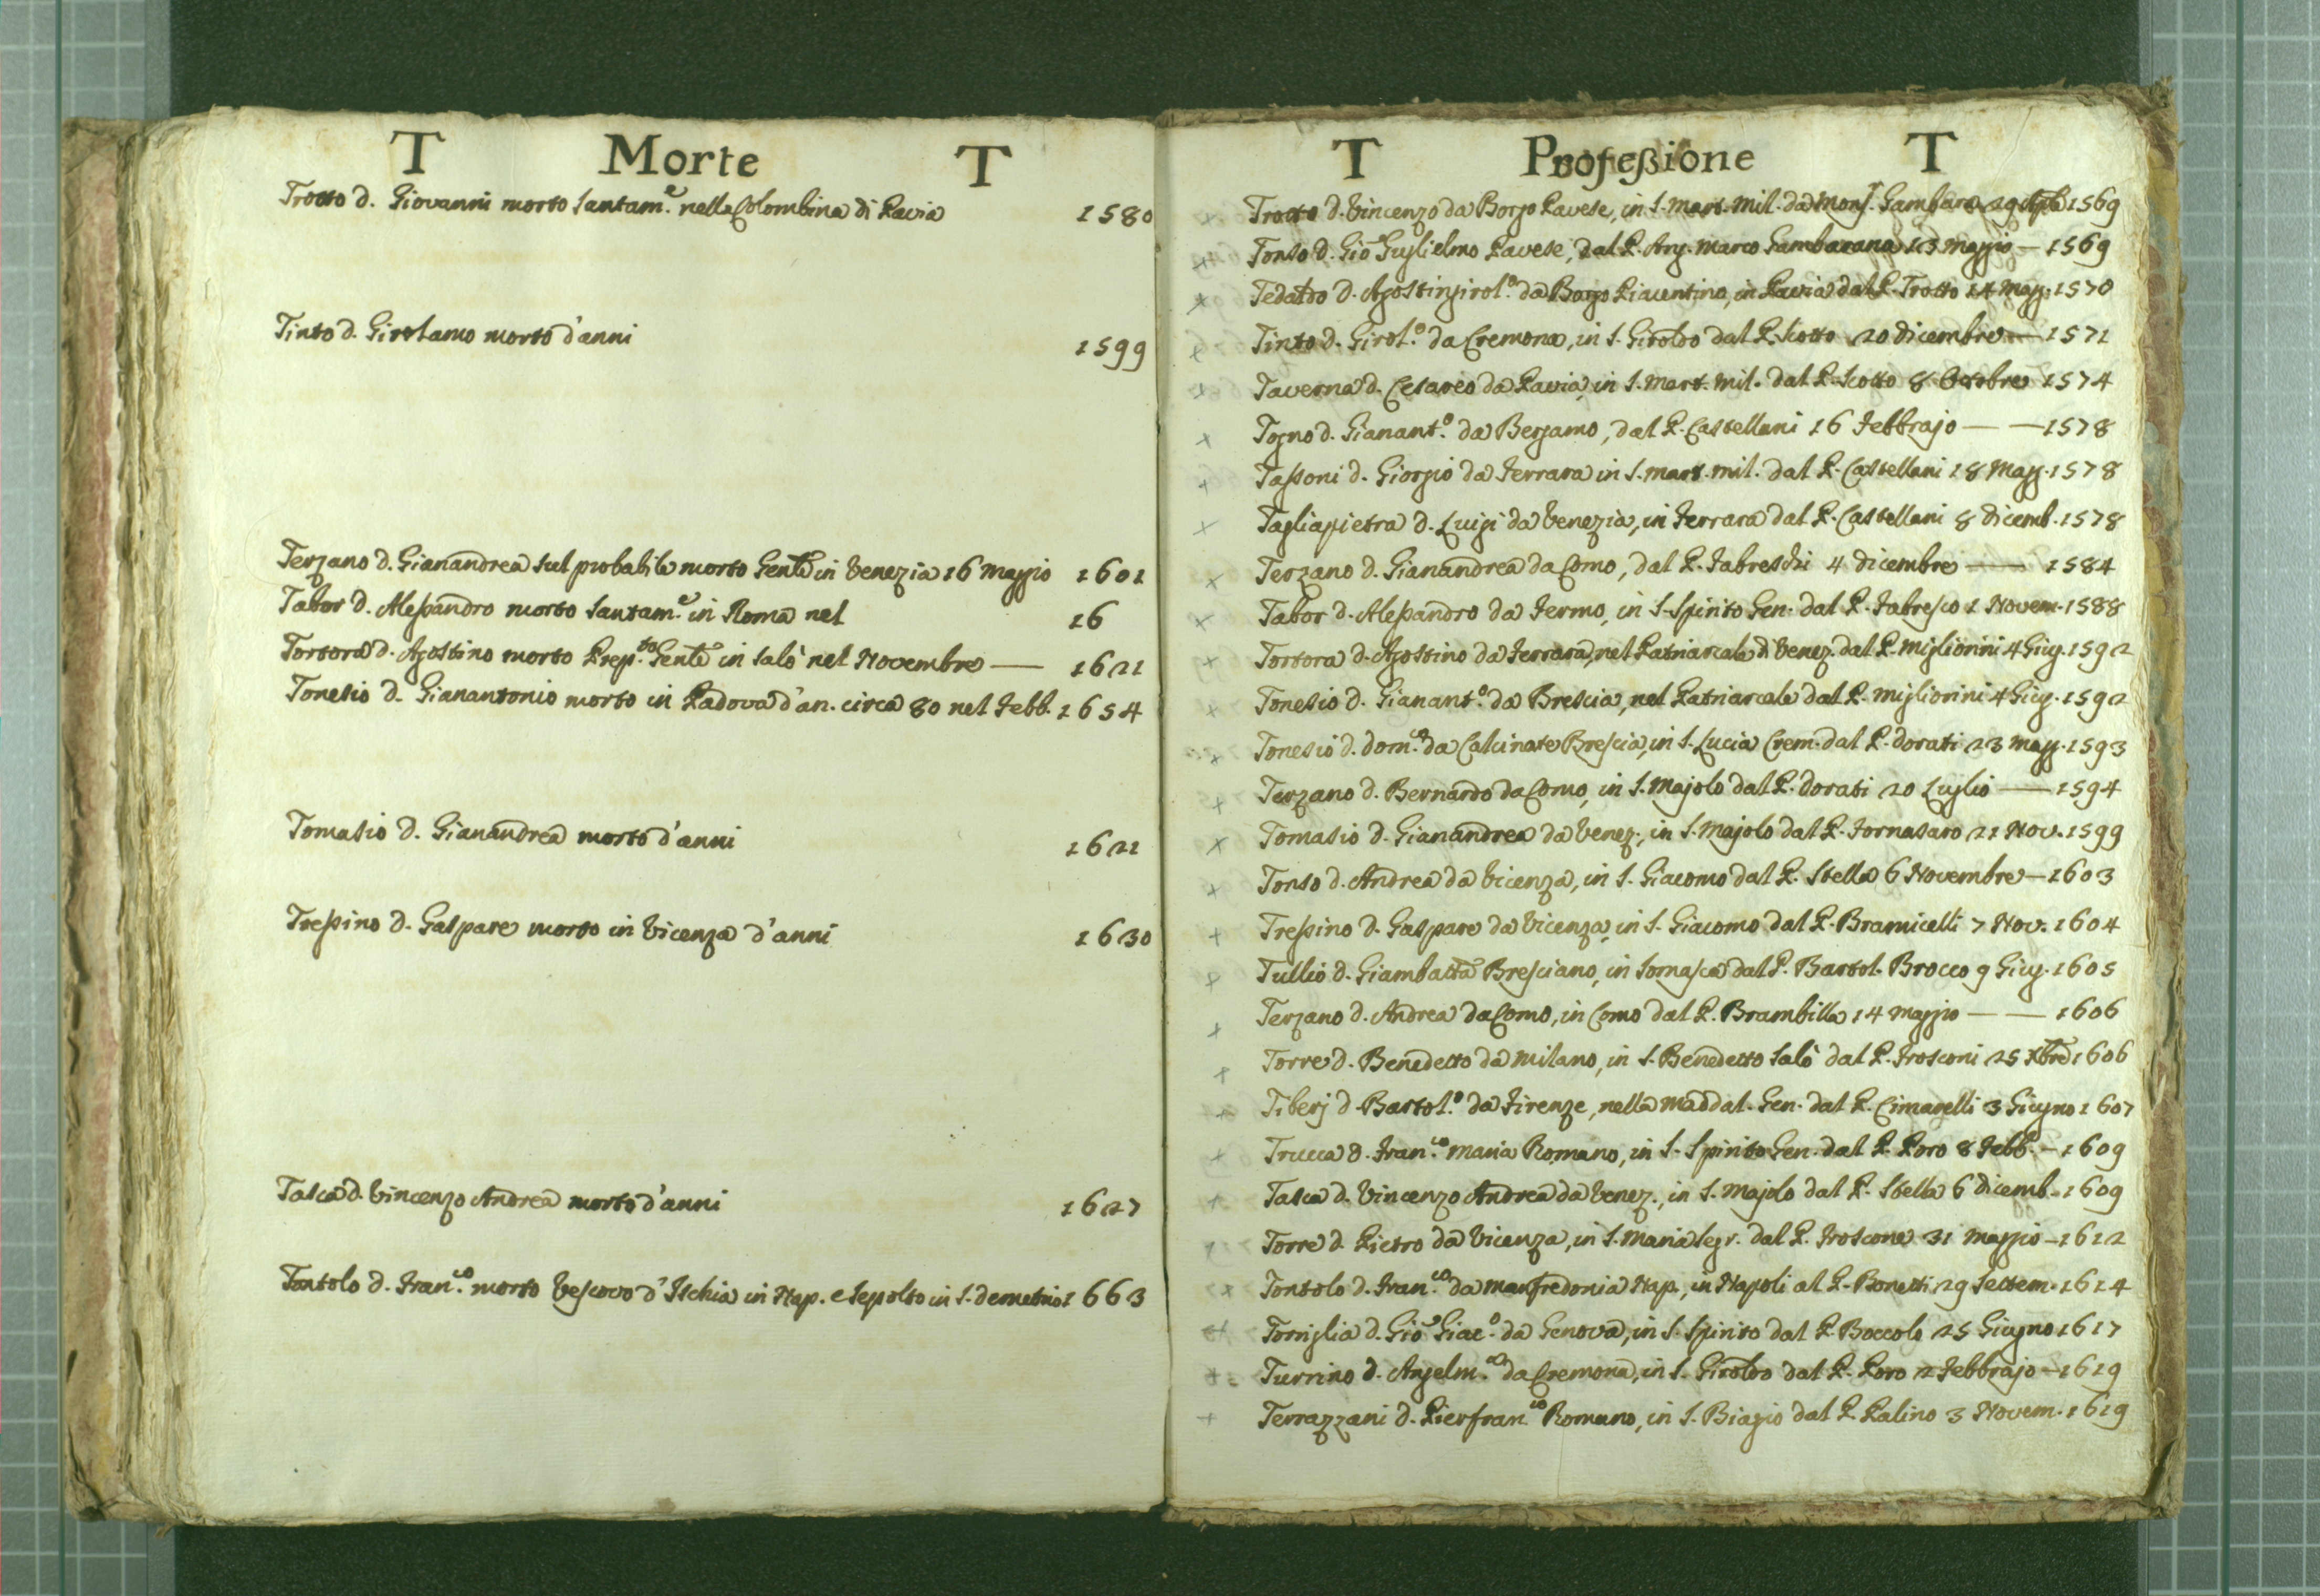 T Morte T
Trotto d. Giovanni morto santam.e nella Colombina di Pavia 1580
Tinto d. Girolamo morto d'anni 1599
Terzano d. Gianandrea sul probabile morto Gente in Venezia 16 Maggio 1601
Tabor d. Alessandro morto santam.e in Roma nel 16
Tortora d. Agostino morto Prep.to Gente in Salò nel Novembre — 1621
Tonesio d. Gianantonio morto in Padova d'an. circa 80 nel Febb. 1654
Tomasio d. Gianandrea morto d'anni 1621
Tressino d. Gaspare morto in Vicenza d'anni 1630
Tasca d. Vincenzo Andrea morto d'anni 1627
Tontolo d. Fran.co morto Vescovo d'Ischia in Nap. e sepolto in S. Demetrio 1663
T Professione T
Trotto d. Vincenzo da Borgo Pavese, in S. Mart. Mil. da Mons.r Gambara 29 1569
Tonso d. Gio Guglielmo Pavese, dal P. Ang. Marco Gambarana 13 Maggio — 1569
Tedaldo d. Agostingirol.o da Borgo Piacentino, in Pavia dal P. Trotto 14 Magg. 1570
Tinto d. Girol.o da Cremona, in S. Giroldo dal P. Scotto 20 dicembre — 1571
Taverna d. Cesareo da Pavia, in S. Mart. Mil. dal P. Scotto 8 Ottobre 1574
Togno d. Gianant.o da Bergamo, dal P. Castellani 16 Febbrajo — — 1578
Tassoni d. Giorgio da Ferrara in S. Mart. Mil. dal P. Castellani 18 Magg. 1578
Tagliapietra d. Luigi da Venezia, in Ferrara dal P. Castellani 8 dicemb. 1578
Terzano d. Gianandrea da Como, dal P. Fabreschi 4 dicembre — 1584
Tabor d. Alessandro da Fermo, in S. Spirito Gen. dal P. Fabresco 1 Novem. 1588
Tortora d. Agostino da Ferrara, nel Patriarcale di Venez. dal P. Migliorini 4 Giug. 1592
Tonesio d. Gianant.o da Brescia, nel Patriarcale dal P. Migliorini 4 Giug. 1592
Tonesio d. Dom.co da Calcinate Brescia, in S. Lucia Crem. dal P. Dorati 23 Magg. 1593
Terzano d. Bernardo da Como, in S. Majolo dal P. Dorati 20 Luglio — 1594
Tomasio d. Gianandrea da Venez., in S. Majolo dal P. Fornasaro 21 Nov. 1599
Tonso d. Andrea da Vicenza, in S. Giacomo dal P. Stella 6 Novembre — 1603
Tressino d. Gaspare da Vicenza, in S. Giacomo dal P. Bramicelli 7 Nov. 1604
Tullio d. Giambatta Bresciano, in Somasca dal P. Bartol. Brocco 9 Giug. 1605
Terzano d. Andrea da Como, in Como dal P. Brambilla 14 Maggio — — 1606
Torre d. Benedetto da Milano, in S. Benedetto Salò dal P. Frosconi 25 Xbre 1606
Tiberj d. Bartol.o da Firenze, nella Maddal. Gen. dal P. Cimarelli 3 Giugno 1607
Trucca d. Fran.co Maria Romano, in S. Spirito Gen. dal P. Poro 8 Febb. — 1609
Tasca d. Vincenzo Andrea da Venez., in S. Majolo dal P. Stella 6 dicemb. 1609
Torre d. Pietro da Vicenza, in S. Maria Segr. dal P. Froscone 31 Maggio — 1612
Tontolo d. Fran.co da Manfredonia Nap., in Napoli al P. Bonetti 29 Settem. 1614
Torriglia d. Gio Giac.o da Genova, in S. Spirito dal P. Boccolo 25 Giugno 1617
Turrino d. Angelm.co da Cremona, in S. Giroldo dal P. Poro 2 Febbrajo — 1619
Terrazzani d. Pierfran.co Romano, in S. Biagio dal P. Palino 3 Novem. 1619